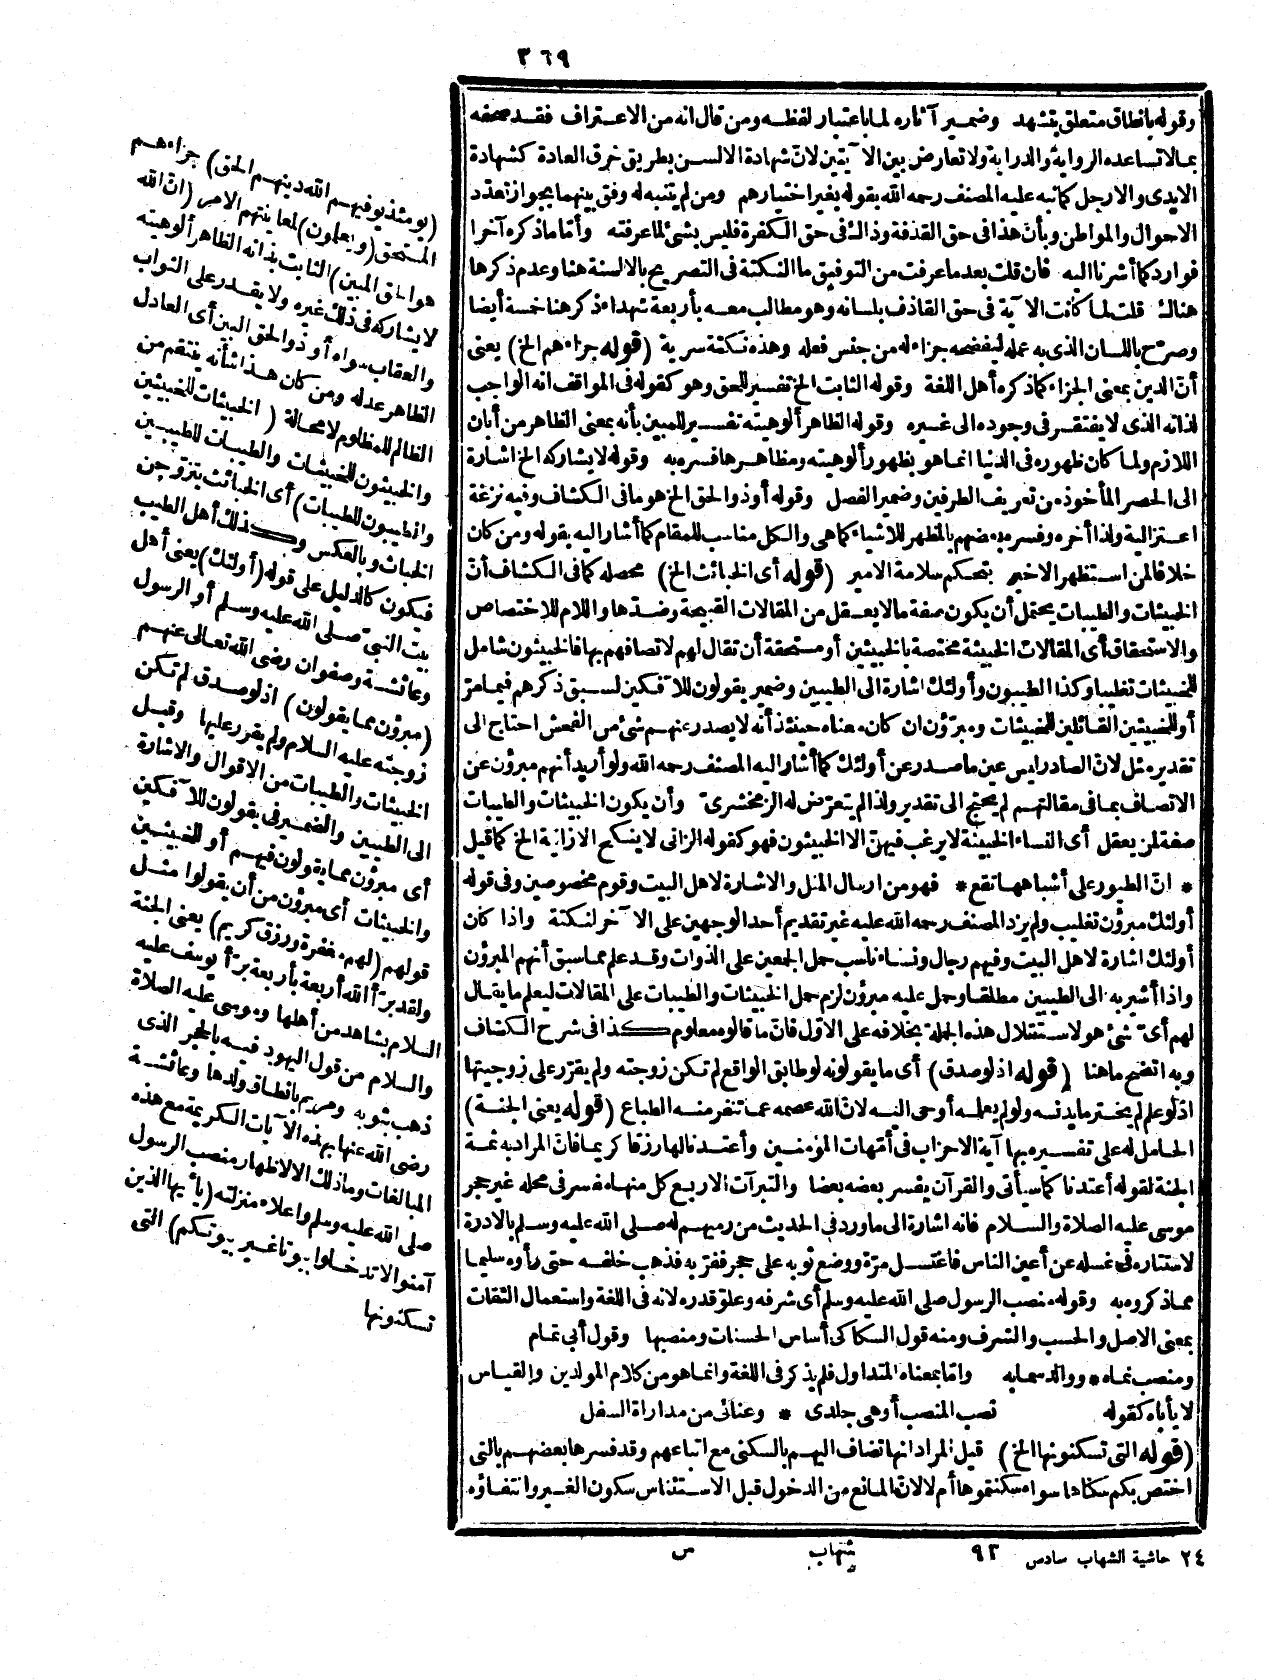 ٣٦٩
وقوله بانطاق متعلق بتشهد وضمير آثاره لما باعتبار لفظه ومن قال انه من الاعتراف فقد صحفه
بما لا تساعده الرواية والدراية ولا تعارض بين الآيتين لان شهادة الالسن بطريق خرق العادة كشهادة
الايدى والارجل كما نبه عليه المصنف رحمه الله بقوله بغير اختيارهم ومن لم يتنبه له وفق بينهما بجواز تعدد
الاحوال والمواطن وبأن هذا فى حق القذفة وذاك فى حق الكفرة فليس بشئ لما عرفته وأما ما ذكره آخرا
فوارد كما أشرنا اليه فان قلت بعد ما عرفت من التوفيق ما النكتة فى التصريح بالالسنة هنا وعدم ذكرها
هناك قلت لما كانت الآية فى حق القاذف بلسانه وهو مطالب معه بأربعة شهداء ذكر هنا خمسة أيضا
وصرح باللسان الذى به عمله ليفضحه جزاء له من جنس فعله وهذه نكتة سرية (قوله جزاءهم الخ) يعنى
أن الدين بمعنى الجزاء كما ذكره أهل اللغة وقوله الثابت الخ تفسير للحق وهو كقوله فى المواقف انه الواجب
لذاته الذى لا يفتقر فى وجوده الى غيره وقوله الظاهر ألوهيته تفسير للمبين بأنه بمعنى الظاهر من أبان
اللازم ولما كان ظهوره فى الدنيا انما هو بظهور ألوهيته ومظاهرها فسره به وقوله لا يشاركه الخ اشارة
الى الحصر المأخوذ من تعريف الطرفين وضمير الفصل وقوله أو ذو الحق الخ هو ما فى الكشاف وفيه نزغة
اعتزالية ولذا أخره وفسره بعضهم بالمظهر للاشياء كما هى والكل مناسب للمقام كما أشار اليه بقوله ومن كان
خلافا لمن استظهر الاخير بتحكم سلامة الامير (قوله أى الخبائث الخ) محصله كما فى الكشاف أن
الخبيثات والطيبات يحتمل أن يكون صفة ما لا يعقل من المقالات القبيحة وضدها واللام للاختصاص
والاستحقاق أى المقالات الخبيثة مختصة بالخبيثين أو مستحقة أن تقال لهم لاتصافهم بها فالخبيثون شامل
للخبيثات تغليبا وكذا الطيبون وأولئك اشارة الى الطيبين وضمير يقولون للآفكين لسبق ذكرهم فيما مر
أو للخبيثين القائلين للخبيثات ومبرؤن ان كان معناه حينئذ أنه لا يصدر عنهم شئ من الفحش احتاج الى
تقدير مثل لان الصادر ليس عين ما صدر عن أولئك كما أشار اليه المصنف رحمه الله ولو أريد أنهم مبرؤن عن
الاتصاف بما فى مقالتهم لم يحتج الى تقدير ولذا لم يتعرض له الزمخشرى وأن يكون الخبيثات والطيبات
صفة لمن يعقل أى النساء الخبيثة لا يرغب فيهن الا الخبيثون فهو كقوله الزانى لا ينكح الا زانية الخ كما قيل
* ان الطيور على أشباهها تقع * فهو من ارسال المثل والاشارة لاهل البيت وقوم مخصوصين وفى قوله
أولئك مبرؤن تغليب ولم يرد المصنف رحمه الله عليه غير تقديم أحد الوجهين على الآخر لنكتة واذا كان
أولئك اشارة لاهل البيت وفيهم رجال ونساء ناسب حمل الجمعين على الذوات وقد علم مما سبق أنهم المبرؤن
واذا أشير به الى الطيبين مطلقا وحمل عليه مبرؤن لزم حمل الخبيثات والطيبات على المقالات ليعلم ما يقال
لهم أى شئ هو لاستقلال هذه الجملة بخلافه على الاول فان ما قالوه معلوم كذا فى شرح الكشاف
وبه اتضح ما هنا (قوله اذ لو صدق) أى ما يقولونه لو طابق الواقع لم تكن زوجته ولم يقرر على زوجيتها
اذ لو علم لم يختر ما يدنسه ولو لم يعلمه أوحى اليه لان الله عصمه عما تنفر منه الطباع (قوله يعنى الجنة)
الحامل له على تفسيره بها آية الاحزاب فى أمهات المؤمنين وأعتدنا لها رزقا كريما فان المراد به ثمة
الجنة لقوله أعتدنا كما سيأتى والقرآن يفسر بعضه بعضا والتبرآت الاربع كل منها مفسر فى محله غير حجر
موسى عليه الصلاة والسلام فانه اشارة الى ما ورد فى الحديث من رميهم له صلى الله عليه وسلم بالادرة
لاستتاره فى غسله عن أعين الناس فاغتسل مرة ووضع ثوبه على حجر ففر به فذهب خلفه حتى رأوه سليما
مما ذكروه به وقوله منصب الرسول صلى الله عليه وسلم أى شرفه وعلو قدره لانه فى اللغة واستعمال الثقات
بمعنى الاصل والحسب والشرف ومنه قول السكاكى أساس الحسنات ومنصبها وقول أبى تمام
ومنصب نماه * ووالد سما به واما بمعناه المتداول فلم يذكر فى اللغة وانما هو من كلام المولدين والقياس
لا يأباه كقوله نصب المنصب أوهى جلدى * وعنائى من مداراة السفل
(قوله التى تسكنونها الخ) قيل المراد انها تضاف اليهم بالسكنى مع اتباعهم وقد فسرها بعضهم بالتى
اختص بكم سكناها سواء سكنتموها أم لا لان المانع من الدخول قبل الاستئناس سكون الغير وانتفاؤه
(يومئذ يوفيهم الله دينهم الحق) جزاءهم
المستحق (ويعلمون) لمعاينتهم الامر (ان الله
هو الحق المبين) الثابت بذاته الظاهر ألوهيته
لا يشاركه فى ذلك غيره ولا يقدر على الثواب
والعقاب سواه أو ذو الحق البين أى العادل
الظاهر عدله ومن كان هذا شأنه ينتقم من
الظالم للمظلوم لا محالة (الخبيثات للخبيثين
والخبيثون للخبيثات والطيبات للطيبين
والطيبون للطيبات) أى الخبائث يتزوجن
الخباث وبالعكس وكذلك أهل الطيب
فيكون كالدليل على قوله (أولئك) يعنى أهل
بيت النبى صلى الله عليه وسلم أو الرسول
وعائشة وصفوان رضى الله تعالى عنهم
(مبرؤن مما يقولون) اذ لو صدق لم تكن
زوجته عليه السلام ولم يقرر عليها وقيل
الخبيثات والطيبات من الاقوال والاشارة
الى الطيبين والضمير فى يقولون للآفكين
أى مبرؤن مما يقولون فيهم أو للخبيثين
والخبيثات أى مبرؤن من أن يقولوا مثل
قولهم (لهم مغفرة ورزق كريم) يعنى الجنة
ولقد برأ الله أربعة بأربعة برأ يوسف عليه
السلام بشاهد من أهلها وموسى عليه الصلاة
والسلام من قول اليهود فيه بالحجر الذى
ذهب بثوبه ومريم بانطاق ولدها وعائشة
رضى الله عنها بهذه الآيات الكريمة مع هذه
المبالغات وما ذلك الا لاظهار منصب الرسول
صلى الله عليه وسلم واعلاء منزلته (يا أيها الذين
آمنوا لا تدخلوا بيوتا غير بيوتكم) التى
تسكنونها
٢٤ حاشية الشهاب سادس ٩٢ شهاب س